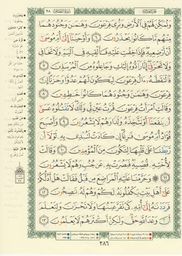 وَنُمَكِّنَ لَهُمْ فِي الْأَرْضِ وَنُرِيَ فِرْعَوْنَ وَهَامَانَ وَجُنُودَهُمَا
مِنْهُم مَّا كَانُوا يَحْذَرُونَ ٦ وَأَوْحَيْنَا إِلَىٰ أُمِّ مُوسَىٰ
أَنْ أَرْضِعِيهِ فَإِذَا خِفْتِ عَلَيْهِ فَأَلْقِيهِ فِي الْيَمِّ وَلَا تَخَافِي
وَلَا تَحْزَنِي إِنَّا رَادُّوهُ إِلَيْكِ وَجَاعِلُوهُ مِنَ الْمُرْسَلِينَ ٧
فَالْتَقَطَهُ آلُ فِرْعَوْنَ لِيَكُونَ لَهُمْ عَدُوًّا وَحَزَنًا إِنَّ
فِرْعَوْنَ وَهَامَانَ وَجُنُودَهُمَا كَانُوا خَاطِئِينَ ٨
وَقَالَتِ امْرَأَتُ فِرْعَوْنَ قُرَّتُ عَيْنٍ لِّي وَلَكَ لَا تَقْتُلُوهُ عَسَىٰ
أَن يَنفَعَنَا أَوْ نَتَّخِذَهُ وَلَدًا وَهُمْ لَا يَشْعُرُونَ ٩ وَأَصْبَحَ
فُؤَادُ أُمِّ مُوسَىٰ فَارِغًا إِن كَادَتْ لَتُبْدِي بِهِ لَوْلَا أَن
رَّبَطْنَا عَلَىٰ قَلْبِهَا لِتَكُونَ مِنَ الْمُؤْمِنِينَ ١٠ وَقَالَتْ
لِأُخْتِهِ قُصِّيهِ فَبَصُرَتْ بِهِ عَن جُنُبٍ وَهُمْ لَا يَشْعُرُونَ ١١
وَحَرَّمْنَا عَلَيْهِ الْمَرَاضِعَ مِن قَبْلُ فَقَالَتْ هَلْ أَدُلُّكُمْ
عَلَىٰ أَهْلِ بَيْتٍ يَكْفُلُونَهُ لَكُمْ وَهُمْ لَهُ نَاصِحُونَ ١٢
فَرَدَدْنَاهُ إِلَىٰ أُمِّهِ كَيْ تَقَرَّ عَيْنُهَا وَلَا تَحْزَنَ وَلِتَعْلَمَ
أَنَّ وَعْدَ اللَّهِ حَقٌّ وَلَٰكِنَّ أَكْثَرَهُمْ لَا يَعْلَمُونَ ١٣
٣٨٦